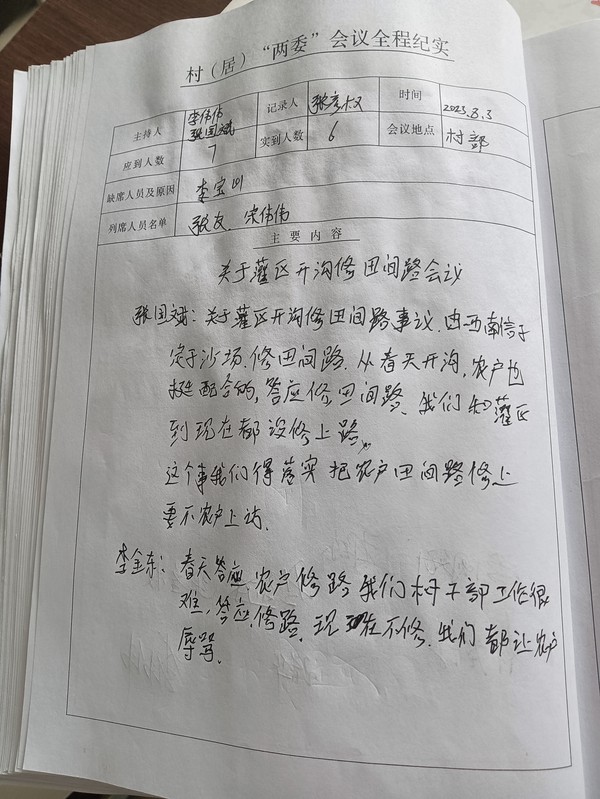 村（居）“两委”会议全程纪实
主持人 李伟伟 张国斌 记录人 张彦权 时间 2023.8.3
应到人数 7 实到人数 6 会议地点 村部
缺席人员及原因 李宝山
列席人员名单 张友、宋伟伟
主要内容
关于灌区开沟修田间路会议
张国斌：关于灌区开沟修田间路事议.由西南
定于沙场.修田间路.从春天开沟,农户也
挺配合的,答应修田间路、我们和灌区
到现在都没修上路,
这个事我们得落实把农户田间路修上
要不农户上访.
李金东：春天答应农户修路我们村干部工作很
难,答应修路.现在不修.我们都让农户
辱骂.